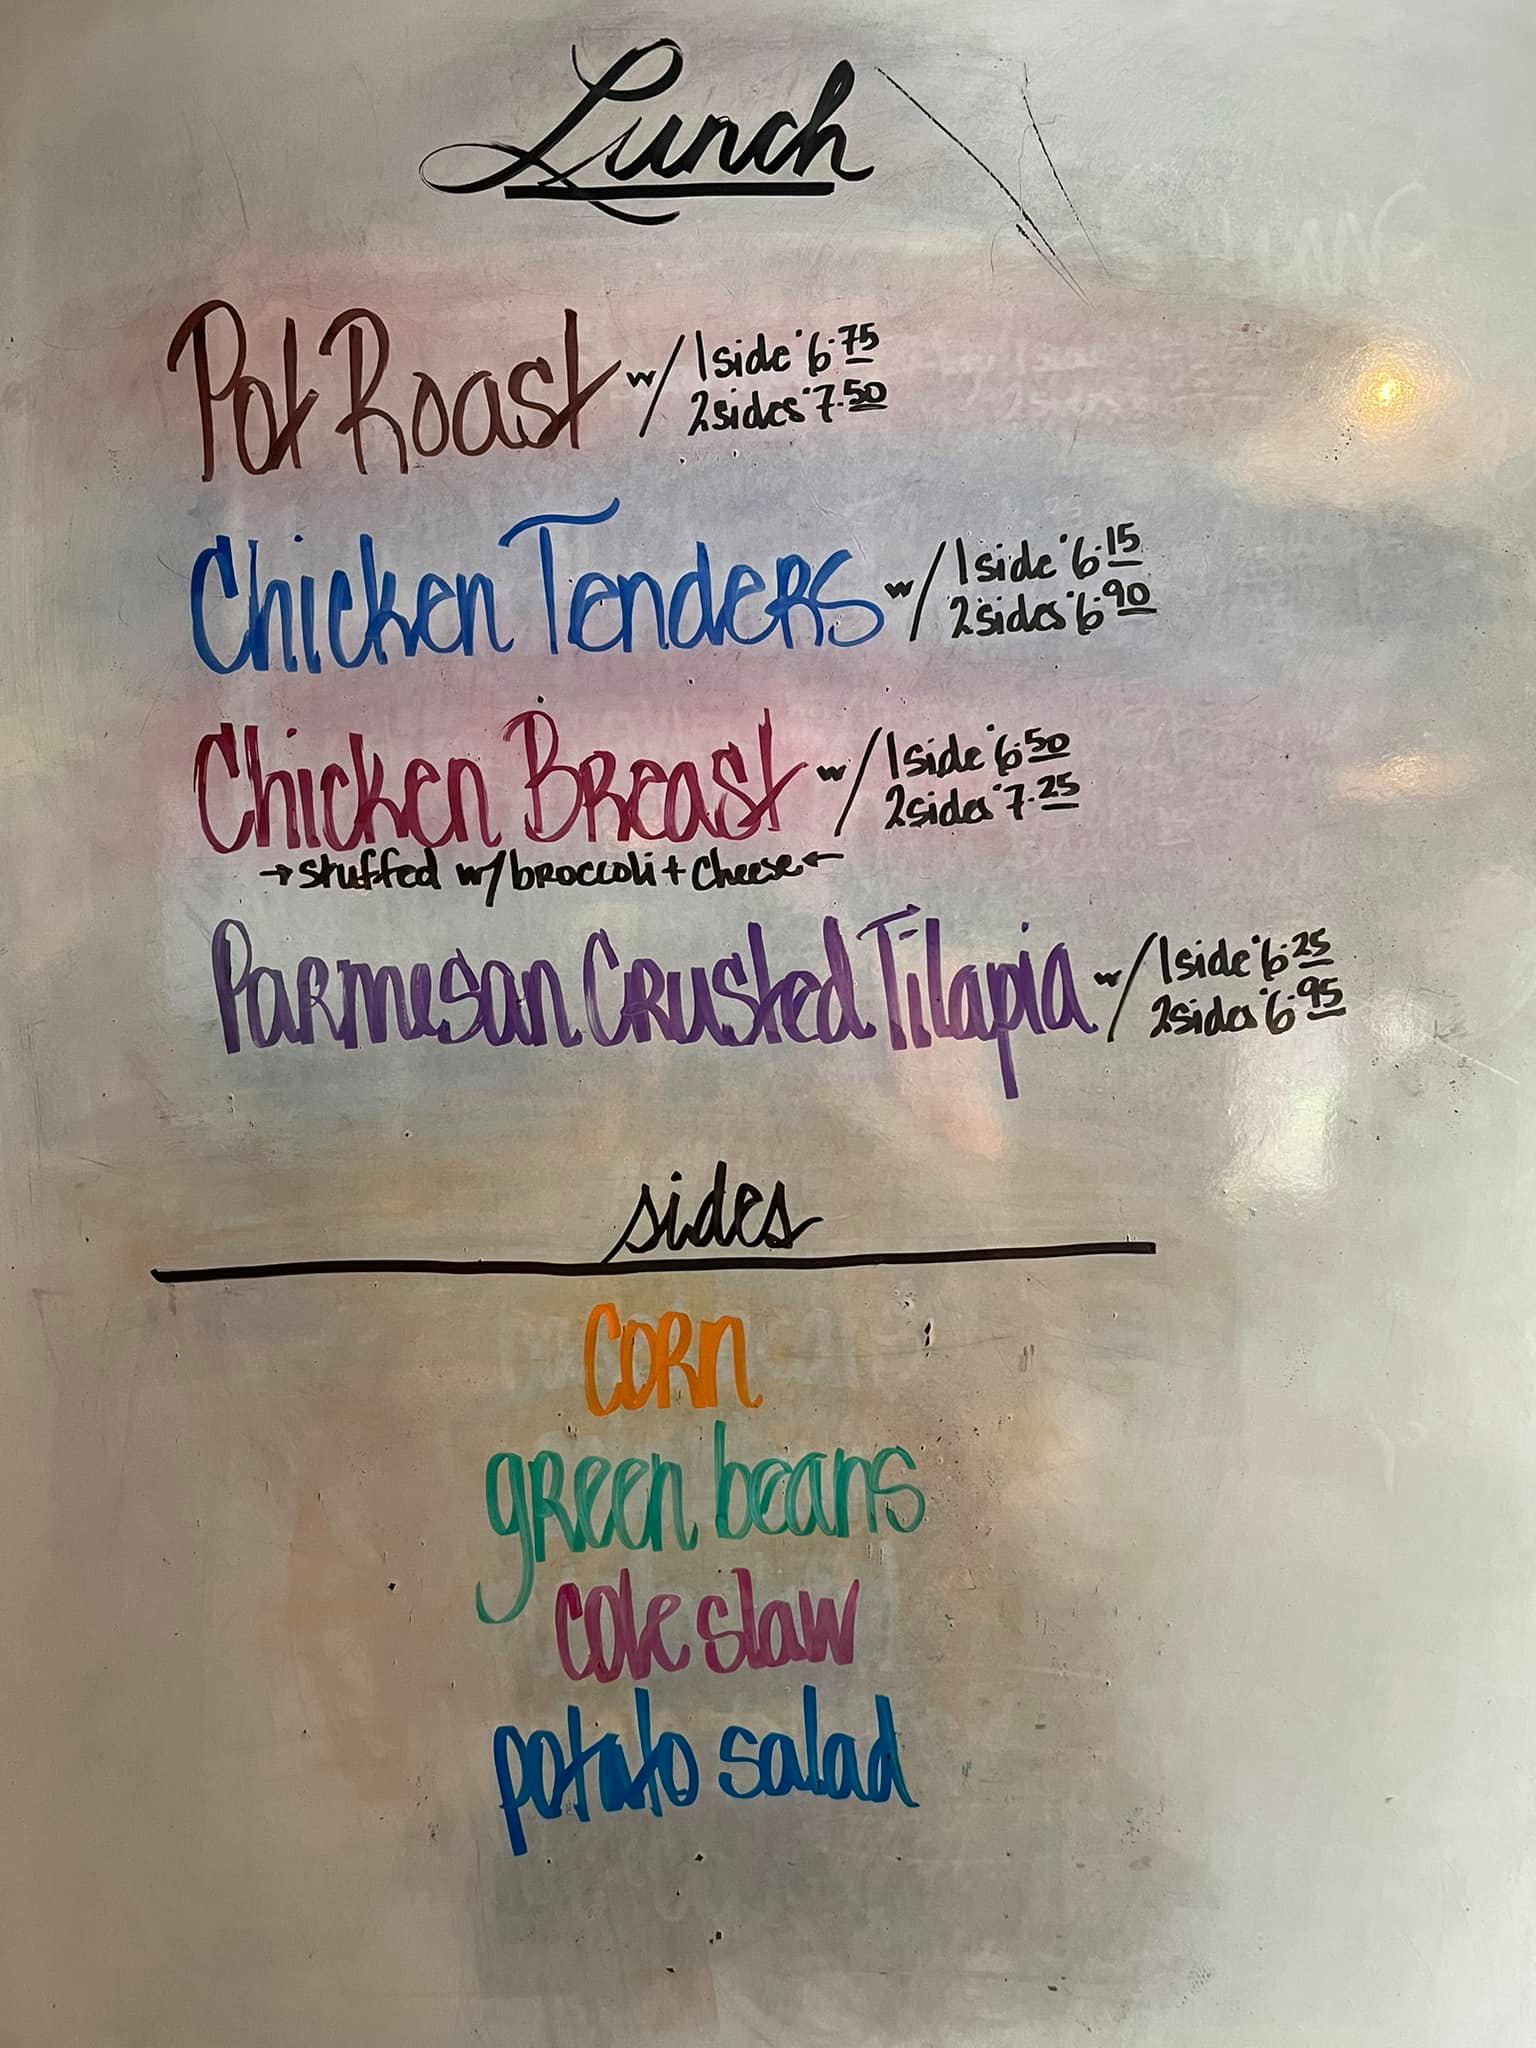 Lunch
Pot Roast w/ 1 side 6.75
2 sides 7.50
Chicken Tenders w/ 1 side 6.15
2 sides 6.90
Chicken Breast w/ 1 side 6.50
2 sides 7.25
→ stuffed w/ broccoli + cheese ←
Parmesan Crusted Tilapia w/ 1 side 6.25
2 sides 6.95
sides
corn
green beans
cole slaw
potato salad